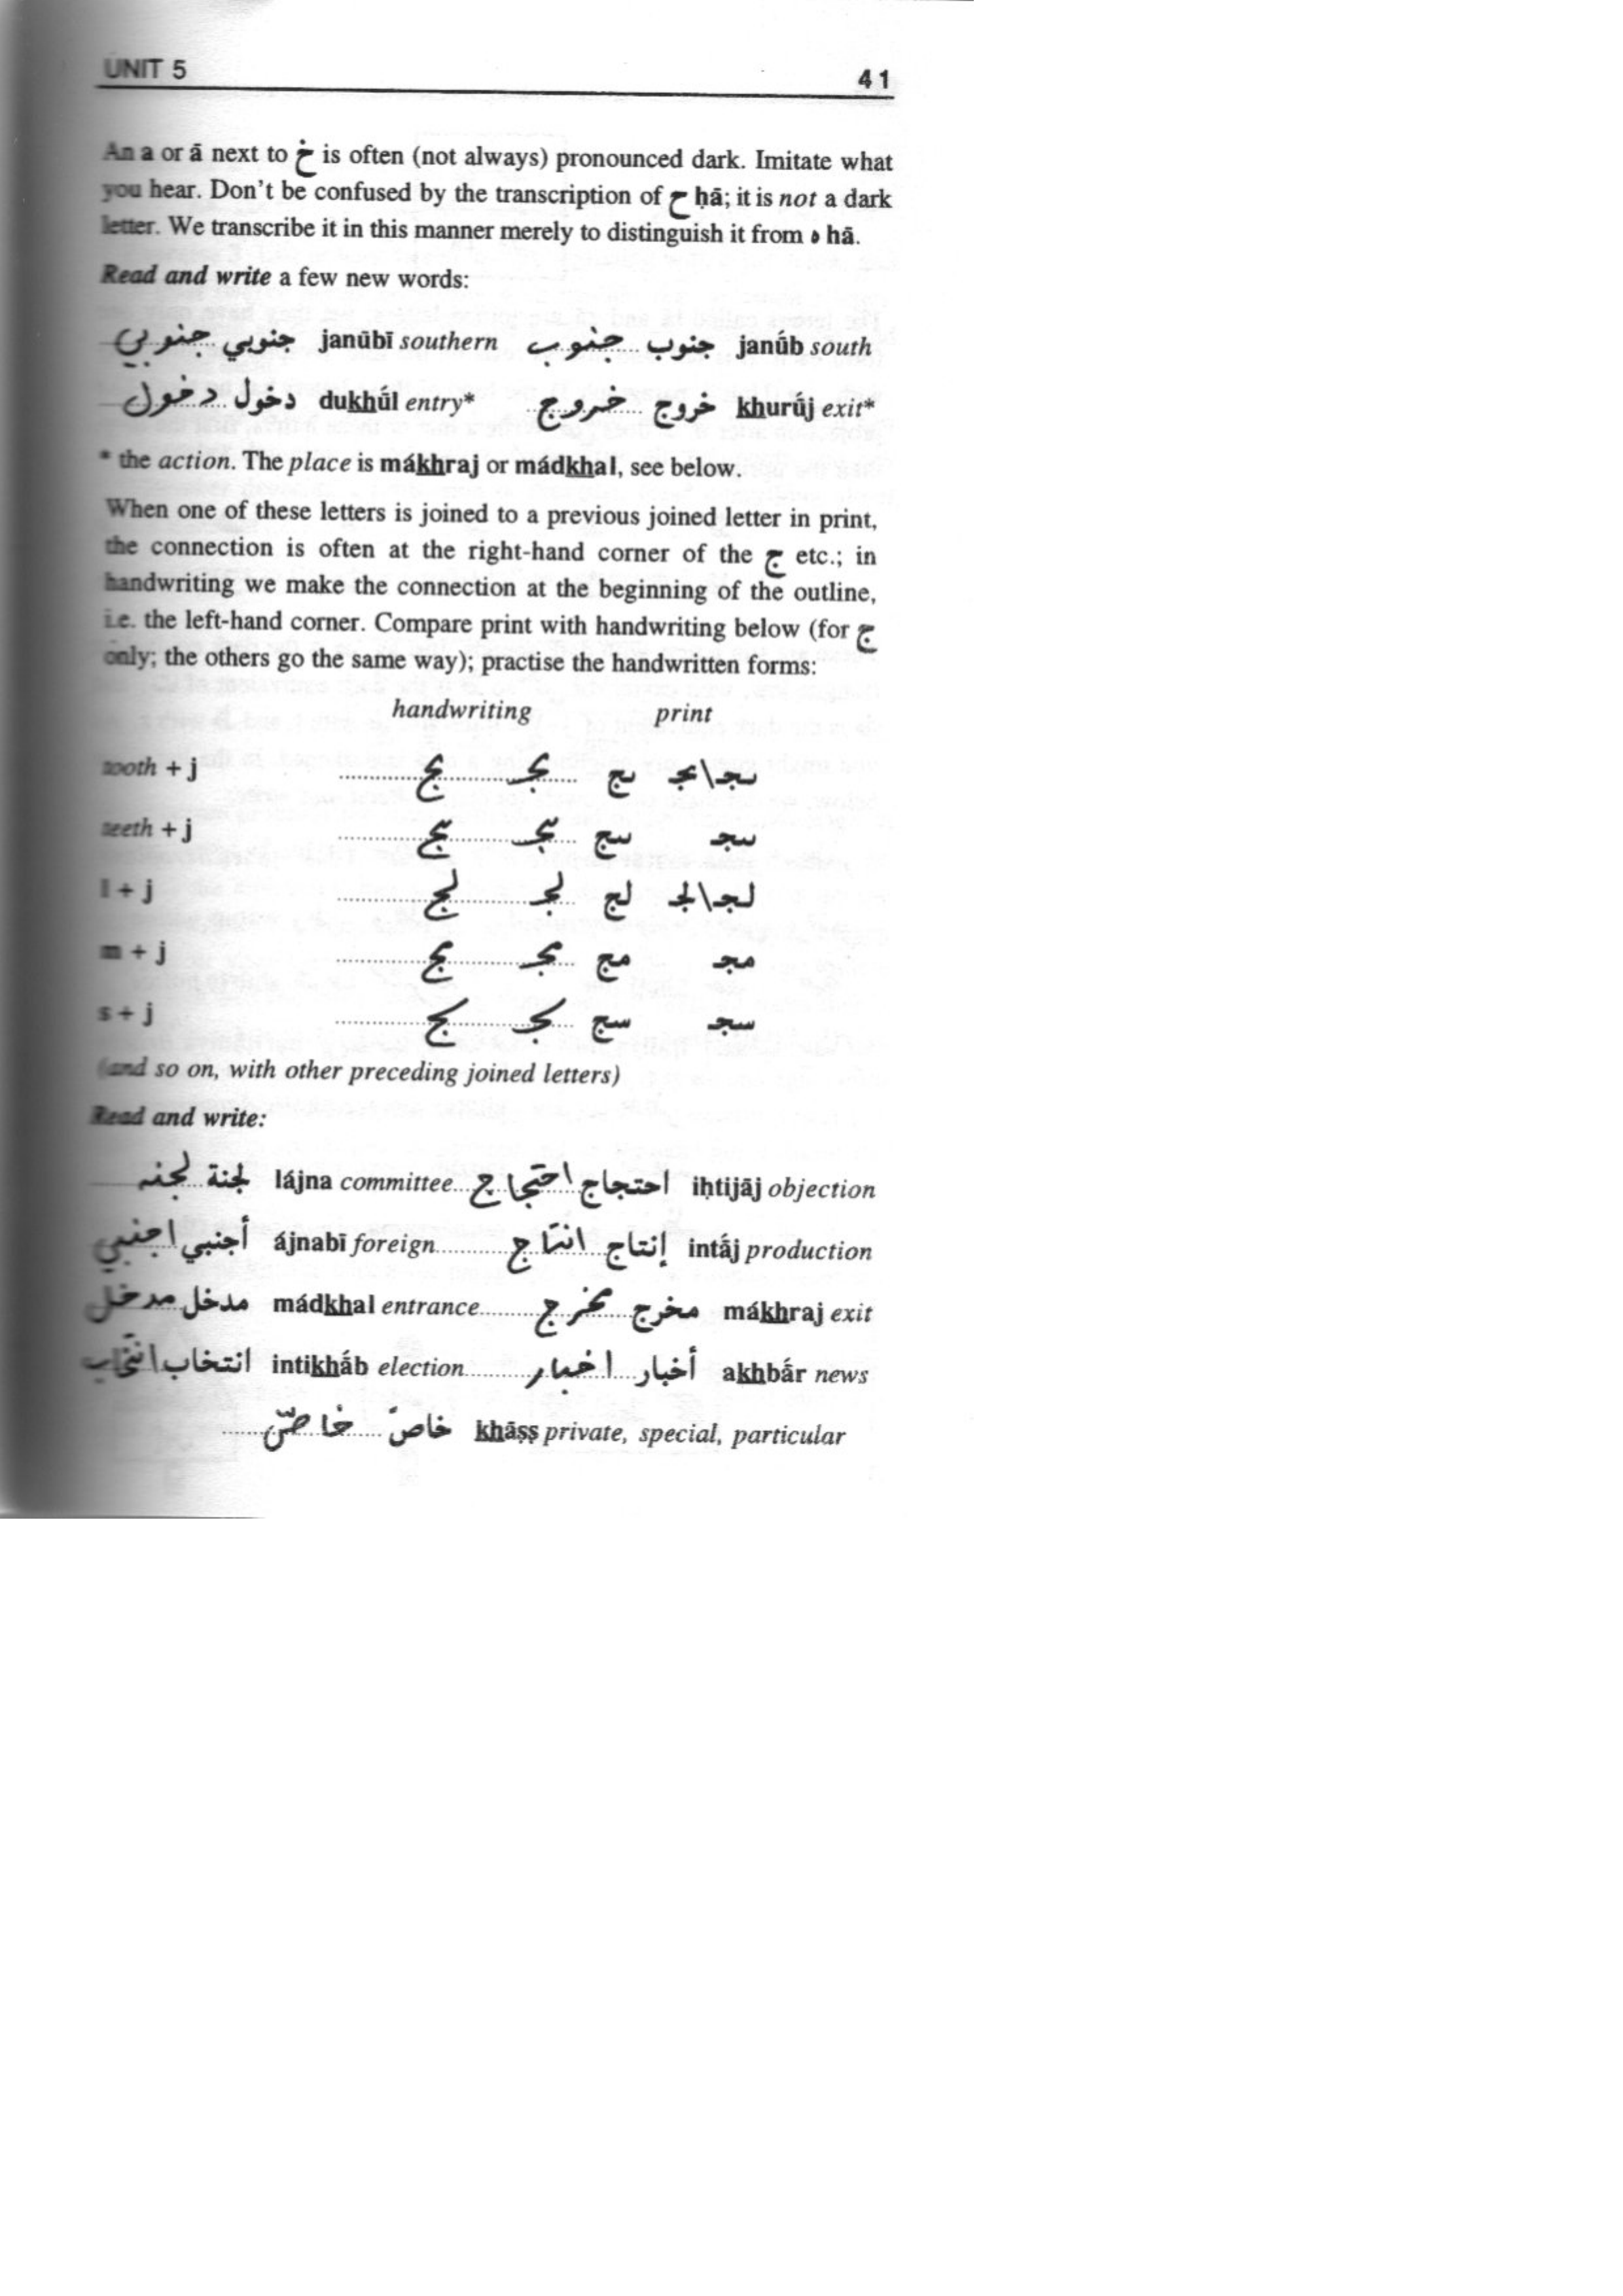 UNIT 5 41
An a or ā next to خ is often (not always) pronounced dark. Imitate what
you hear. Don't be confused by the transcription of ح ḥā; it is not a dark
letter. We transcribe it in this manner merely to distinguish it from ه hā.
Read and write a few new words:
janūbī southern جنوبي جنوبي janū́b south جنوب جنوب
dukhū́l entry* دخول دخول khurū́j exit* خروج خروج
* the action. The place is mákhraj or mádkhal, see below.
When one of these letters is joined to a previous joined letter in print,
the connection is often at the right-hand corner of the ج etc.; in
handwriting we make the connection at the beginning of the outline,
i.e. the left-hand corner. Compare print with handwriting below (for ج
only; the others go the same way); practise the handwritten forms:
handwriting print
tooth + j
teeth + j
l + j لج لجـ لج لجـ\لجـ
m + j مج مجـ مج مجـ
s + j سج سجـ سج سجـ
(and so on, with other preceding joined letters)
Read and write:
lájna committee لجنة لجنه iḥtijāj objection احتجاج احتجاج
ájnabī foreign أجنبي اجنبي intā́j production إنتاج انتاج
mádkhal entrance مدخل مدخل mákhraj exit مخرج مخرج
intikhā́b election انتخاب انتخاب akhbā́r news أخبار اخبار
khāṣṣ private, special, particular خاصّ خاصّ